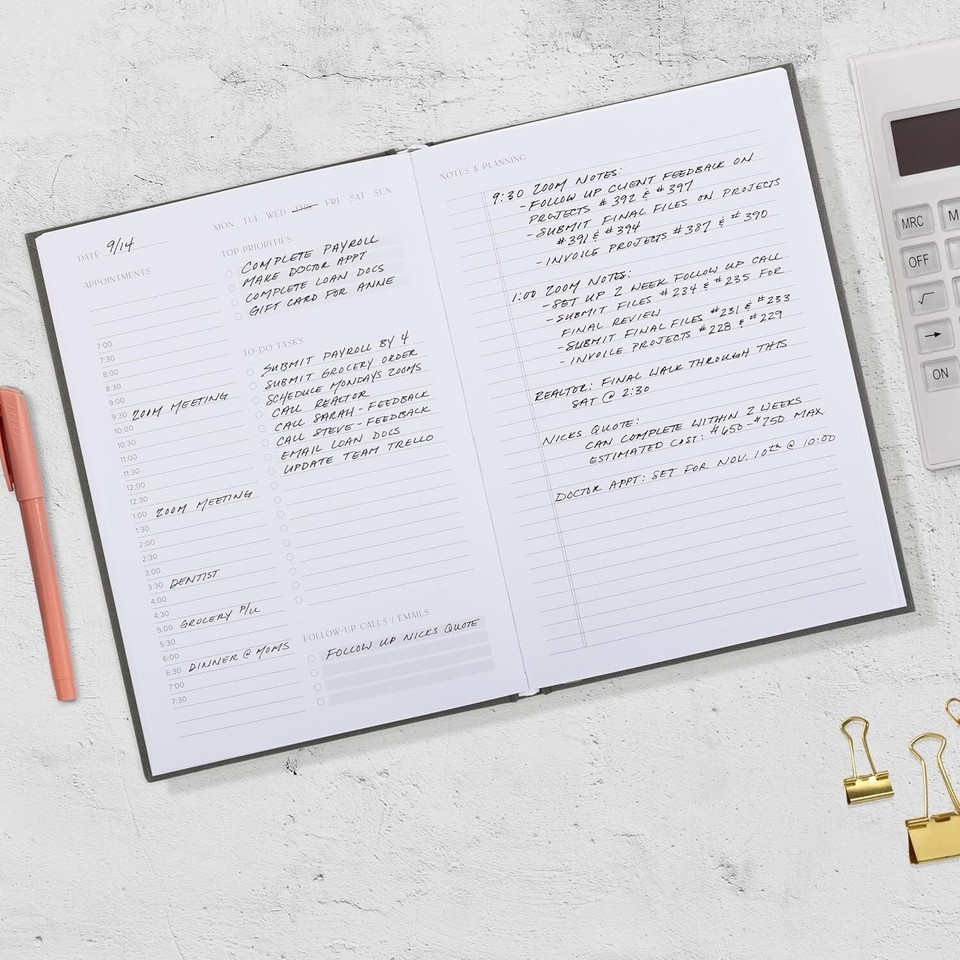 DATE 9/14
MON TUE WED THU FRI SAT SUN
APPOINTMENTS
7:00
7:30
8:00
8:30
9:00
9:30 ZOOM MEETING
10:00
10:30
11:00
11:30
12:00
12:30
1:00 ZOOM MEETING
1:30
2:00
2:30
3:00
3:30 DENTIST
4:00
4:30
5:00 GROCERY P/U
5:30
6:00
6:30 DINNER @ MOMS
7:00
7:30
TOP PRIORITIES
COMPLETE PAYROLL
MAKE DOCTOR APPT
COMPLETE LOAN DOCS
GIFT CARD FOR ANNE
TO-DO TASKS
SUBMIT PAYROLL BY 4
SUBMIT GROCERY ORDER
SCHEDULE MONDAYS ZOOMS
CALL REALTOR
CALL SARAH - FEEDBACK
CALL STEVE - FEEDBACK
EMAIL LOAN DOCS
UPDATE TEAM TRELLO
FOLLOW-UP CALLS / EMAILS
FOLLOW UP NICKS QUOTE
NOTES & PLANNING
9:30 ZOOM NOTES:
- FOLLOW UP CLIENT FEEDBACK ON
PROJECTS #392 & #397
- SUBMIT FINAL FILES ON PROJECTS
#391 & #394
- INVOICE PROJECTS #387 & #390
1:00 ZOOM NOTES:
- SET UP 2 WEEK FOLLOW UP CALL
- SUBMIT FILES #234 & #235 FOR
FINAL REVIEW
- SUBMIT FINAL FILES #231 & #233
- INVOICE PROJECTS #228 & #229
REALTOR: FINAL WALK THROUGH THIS
SAT @ 2:30
NICKS QUOTE:
CAN COMPLETE WITHIN 2 WEEKS
ESTIMATED COST: $650-$750 MAX
DOCTOR APPT: SET FOR NOV. 10th @ 10:00
MRC
OFF
√
→
ON